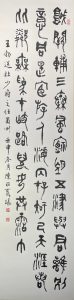 城闕輔三秦風烟望五津與君離別
意同是宦遊人海內存知己天涯
若比鄰無為在歧路兒女共沾巾
王勃送杜少府之任蜀州 申冬月陳